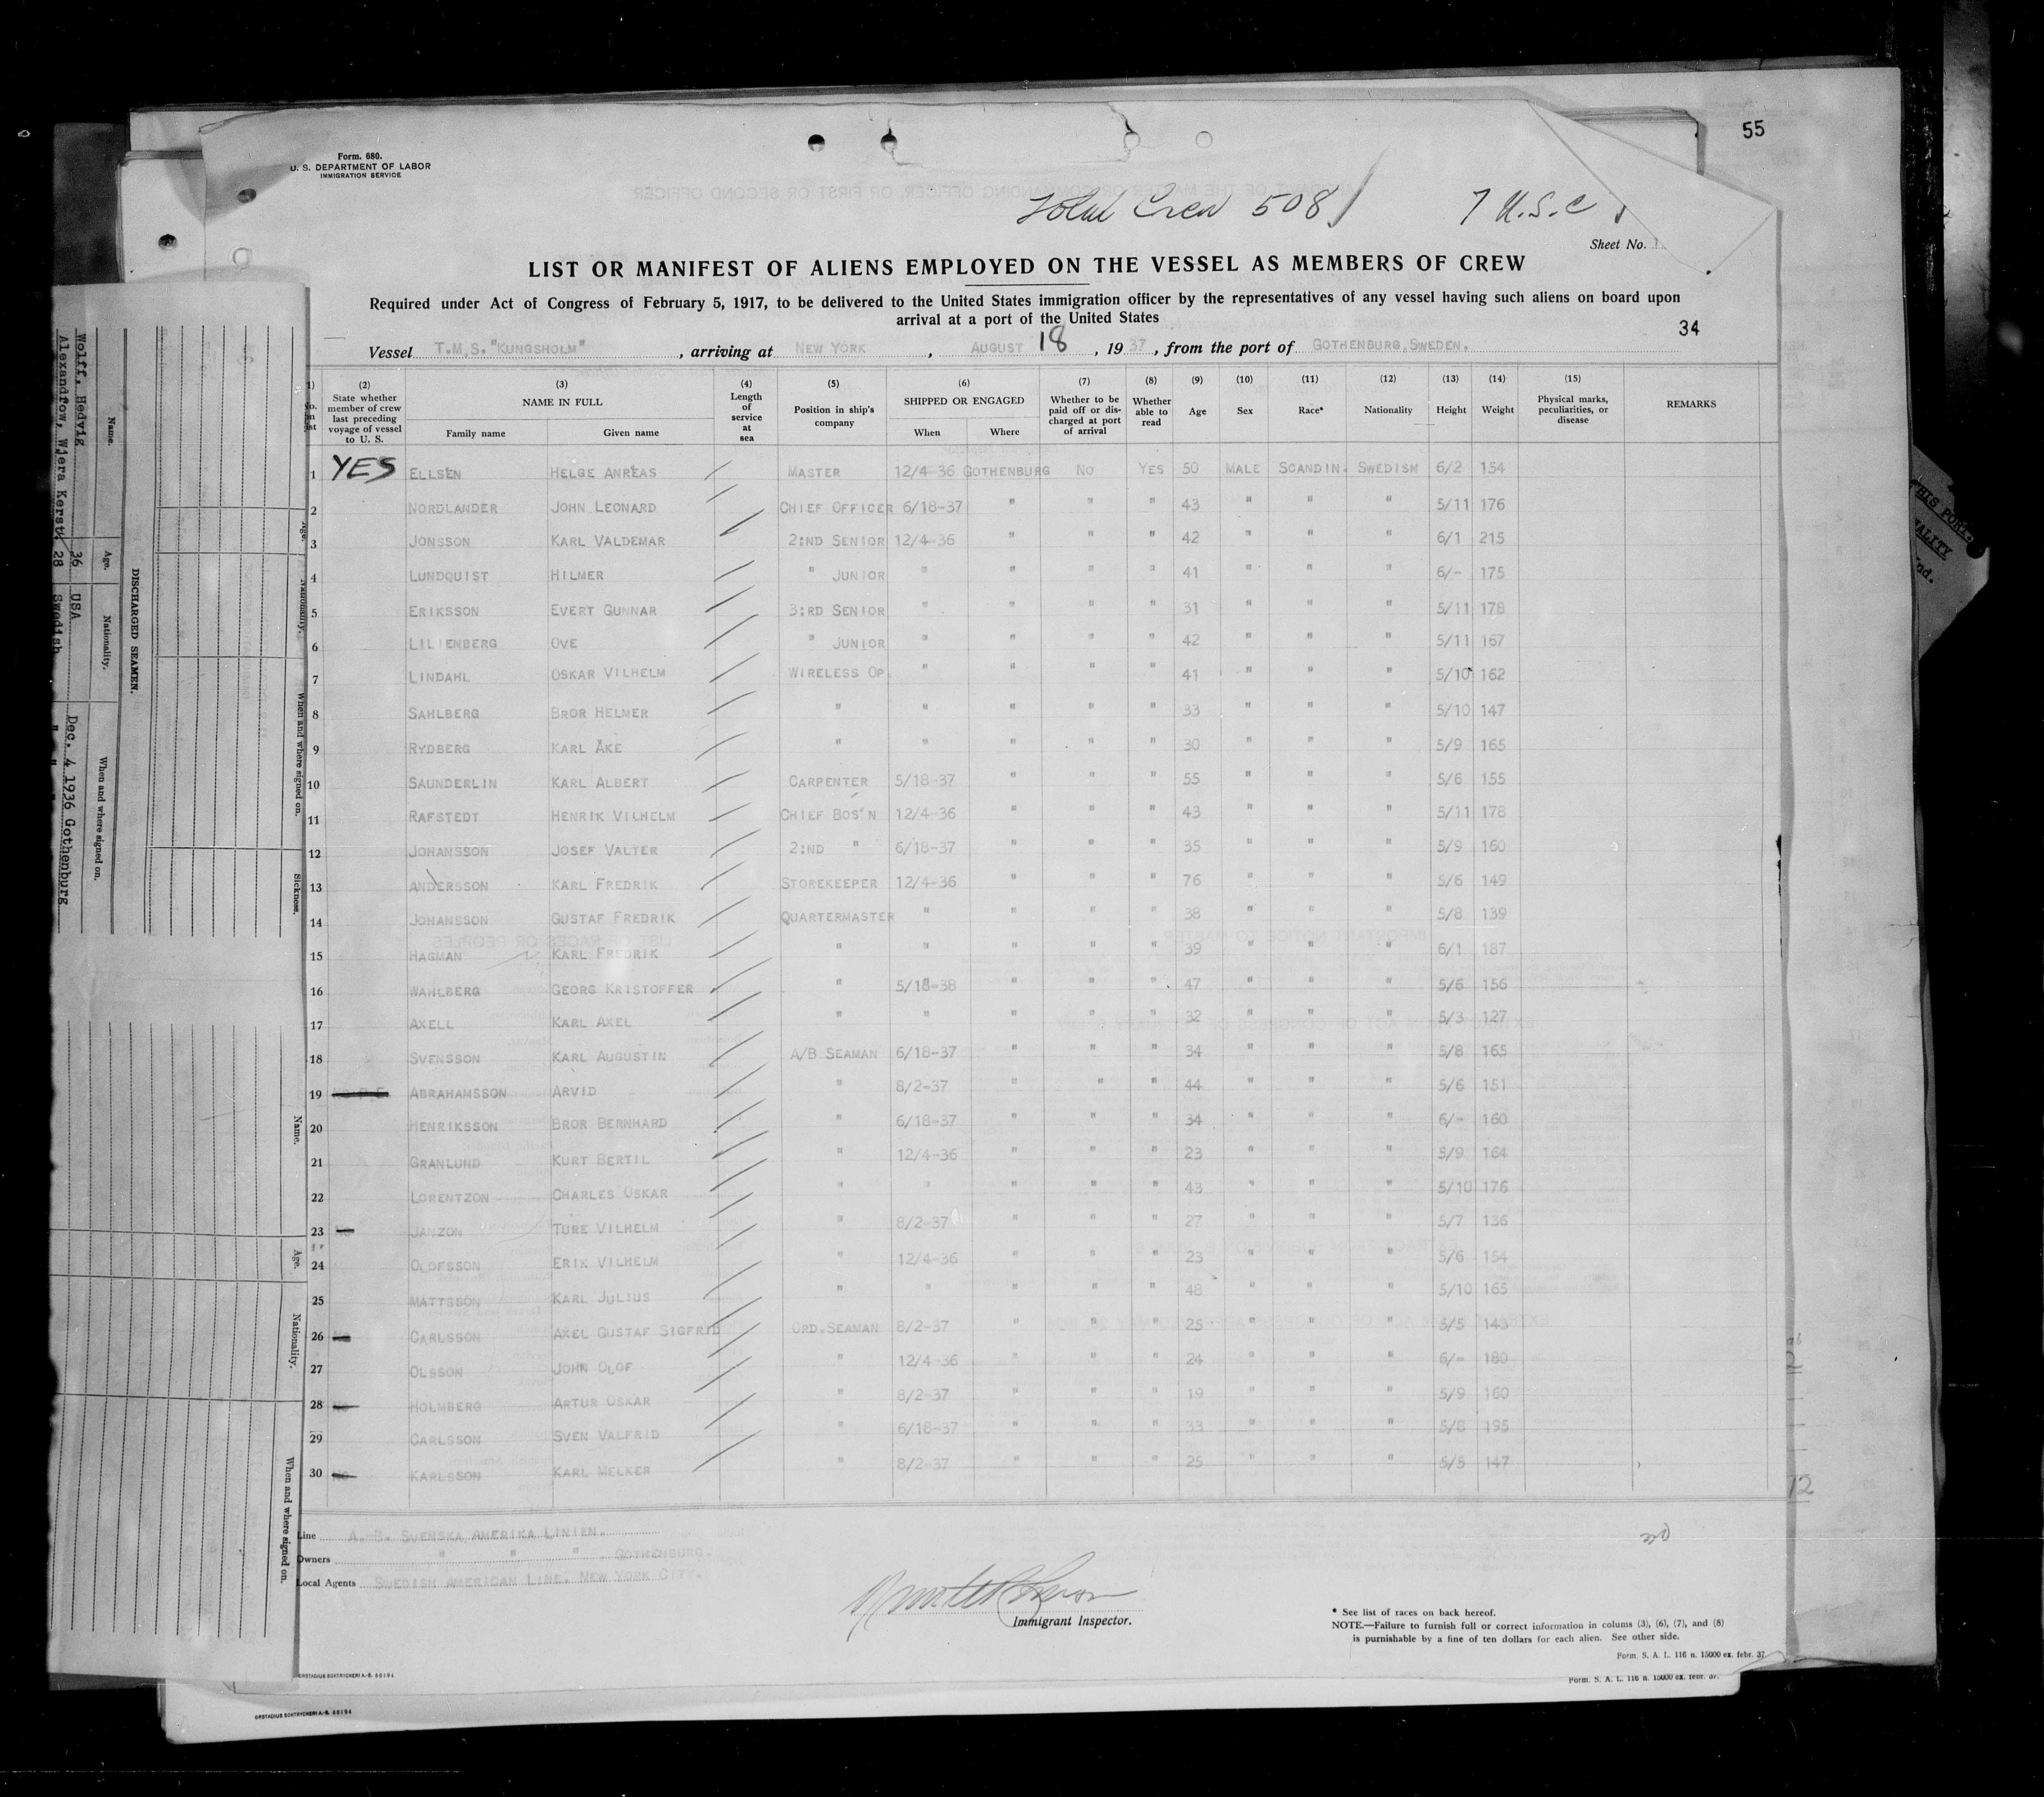 55
Form. 680.
U. S. DEPARTMENT OF LABOR
IMMIGRATION SERVICE
Total Crew 508 7 U.S.C
Sheet No. 1
LIST OR MANIFEST OF ALIENS EMPLOYED ON THE VESSEL AS MEMBERS OF CREW
Required under Act of Congress of February 5, 1917, to be delivered to the United States immigration officer by the representatives of any vessel having such aliens on board upon
arrival at a port of the United States
34
Vessel T.M.S. "KUNGSHOLM", arriving at NEW YORK, AUGUST 18, 1937, from the port of GOTHENBURG, SWEDEN.
(2) (3) (4) (5) (6) (7) (8) (9) (10) (11) (12) (13) (14) (15)
State whether member of crew last preceding voyage of vessel to U. S. NAME IN FULL Family name Given name Length of service at sea Position in ship's company SHIPPED OR ENGAGED When Where Whether to be paid off or discharged at port of arrival Whether able to read Age Sex Race* Nationality Height Weight Physical marks, peculiarities, or disease REMARKS
1 YES ELLSEN HELGE ANREAS MASTER 12/4-36 GOTHENBURG NO YES 50 MALE SCANDIN. SWEDISH 6/2 154
2 NORDLANDER JOHN LEONARD CHIEF OFFICER 6/18-37 " " " 43 " " " 5/11 176
3 JONSSON KARL VALDEMAR 2:ND SENIOR 12/4-36 " " " 42 " " " 6/1 215
4 LUNDQUIST HILMER " JUNIOR " " " " 41 " " " 6/- 175
5 ERIKSSON EVERT GUNNAR 3:RD SENIOR " " " " 31 " " " 5/11 178
6 LILIENBERG OVE " JUNIOR " " " " 42 " " " 5/11 167
7 LINDAHL OSKAR VILHELM WIRELESS OP. " " " " 41 " " " 5/10 162
8 SAHLBERG BROR HELMER " " " " " 33 " " " 5/10 147
9 RYDBERG KARL ÅKE " " " " " 30 " " " 5/9 165
10 SAUNDERLIN KARL ALBERT CARPENTER 5/18-37 " " " 55 " " " 5/6 155
11 RAFSTEDT HENRIK VILHELM CHIEF BOS'N 12/4-36 " " " 43 " " " 5/11 178
12 JOHANSSON JOSEF VALTER 2:ND " 6/18-37 " " " 35 " " " 5/9 160
13 ANDERSSON KARL FREDRIK STOREKEEPER 12/4-36 " " " 76 " " " 5/6 149
14 JOHANSSON GUSTAF FREDRIK QUARTERMASTER " " " " 38 " " " 5/8 139
15 HAGMAN KARL FREDRIK " " " " " 39 " " " 6/1 187
16 WAHLBERG GEORG KRISTOFFER " 5/18-38 " " " 47 " " " 5/6 156
17 AXELL KARL AXEL " " " " " 32 " " " 5/3 127
18 SVENSSON KARL AUGUSTIN A/B SEAMAN 6/18-37 " " " 34 " " " 5/8 165
19 ABRAHAMSSON ARVID " 8/2-37 " " " 44 " " " 5/6 151
20 HENRIKSSON BROR BERNHARD " 6/18-37 " " " 34 " " " 6/- 160
21 GRANLUND KURT BERTIL " 12/4-36 " " " 23 " " " 5/9 164
22 LORENTZON CHARLES OSKAR " " " " " 43 " " " 5/10 176
23 NO JANZON TURE VILHELM " 8/2-37 " " " 27 " " " 5/7 136
24 OLOFSSON ERIK VILHELM " 12/4-36 " " " 23 " " " 5/6 154
25 MATTSSON KARL JULIUS " " " " " 48 " " " 5/10 165
26 NO CARLSSON AXEL GUSTAF SIGFRID ORD.SEAMAN 8/2-37 " " " 25 " " " 5/5 143
27 OLSSON JOHN OLOF " 12/4-36 " " " 24 " " " 6/= 180
28 NO HOLMBERG ARTUR OSKAR " 8/2-37 " " " 19 " " " 5/9 160
29 CARLSSON SVEN VALFRID " 6/18-37 " " " 33 " " " 5/8 195
30 NO KARLSSON KARL MELKER " 8/2-37 " " " 25 " " " 5/5 147
12
Line A.-B. SVENSKA AMERIKA LINIEN.
Owners " " " GOTHENBURG.
Local Agents SWEDISH AMERICAN LINE, NEW YORK CITY.
Immigrant Inspector.
* See list of races on back hereof.
NOTE.—Failure to furnish full or correct information in colums (3), (6), (7), and (8)
is purnishable by a fine of ten dollars for each alien. See other side.
Form. S. A. L. 116 n. 15000 ex. febr. 37
Form. S. A. L. 116 n. 15000 ex. febr. 37.
ORSTADIUS BOKTRYCKERI A.-B. 60194
ORSTADIUS BOKTRYCKERI A.-B. 60194
DISCHARGED SEAMEN.
Name. Age. Nationality. When and where signed on.
Wolff, Hedvig 36 USA Dec. 4 1936 Gothenburg
Alexandrow, Wjera Kerst. 28 Swedish " " "
Age. Nationality. When and where signed on. Sickness.
Name. Age. Nationality. When and where signed on.
THIS PORT.